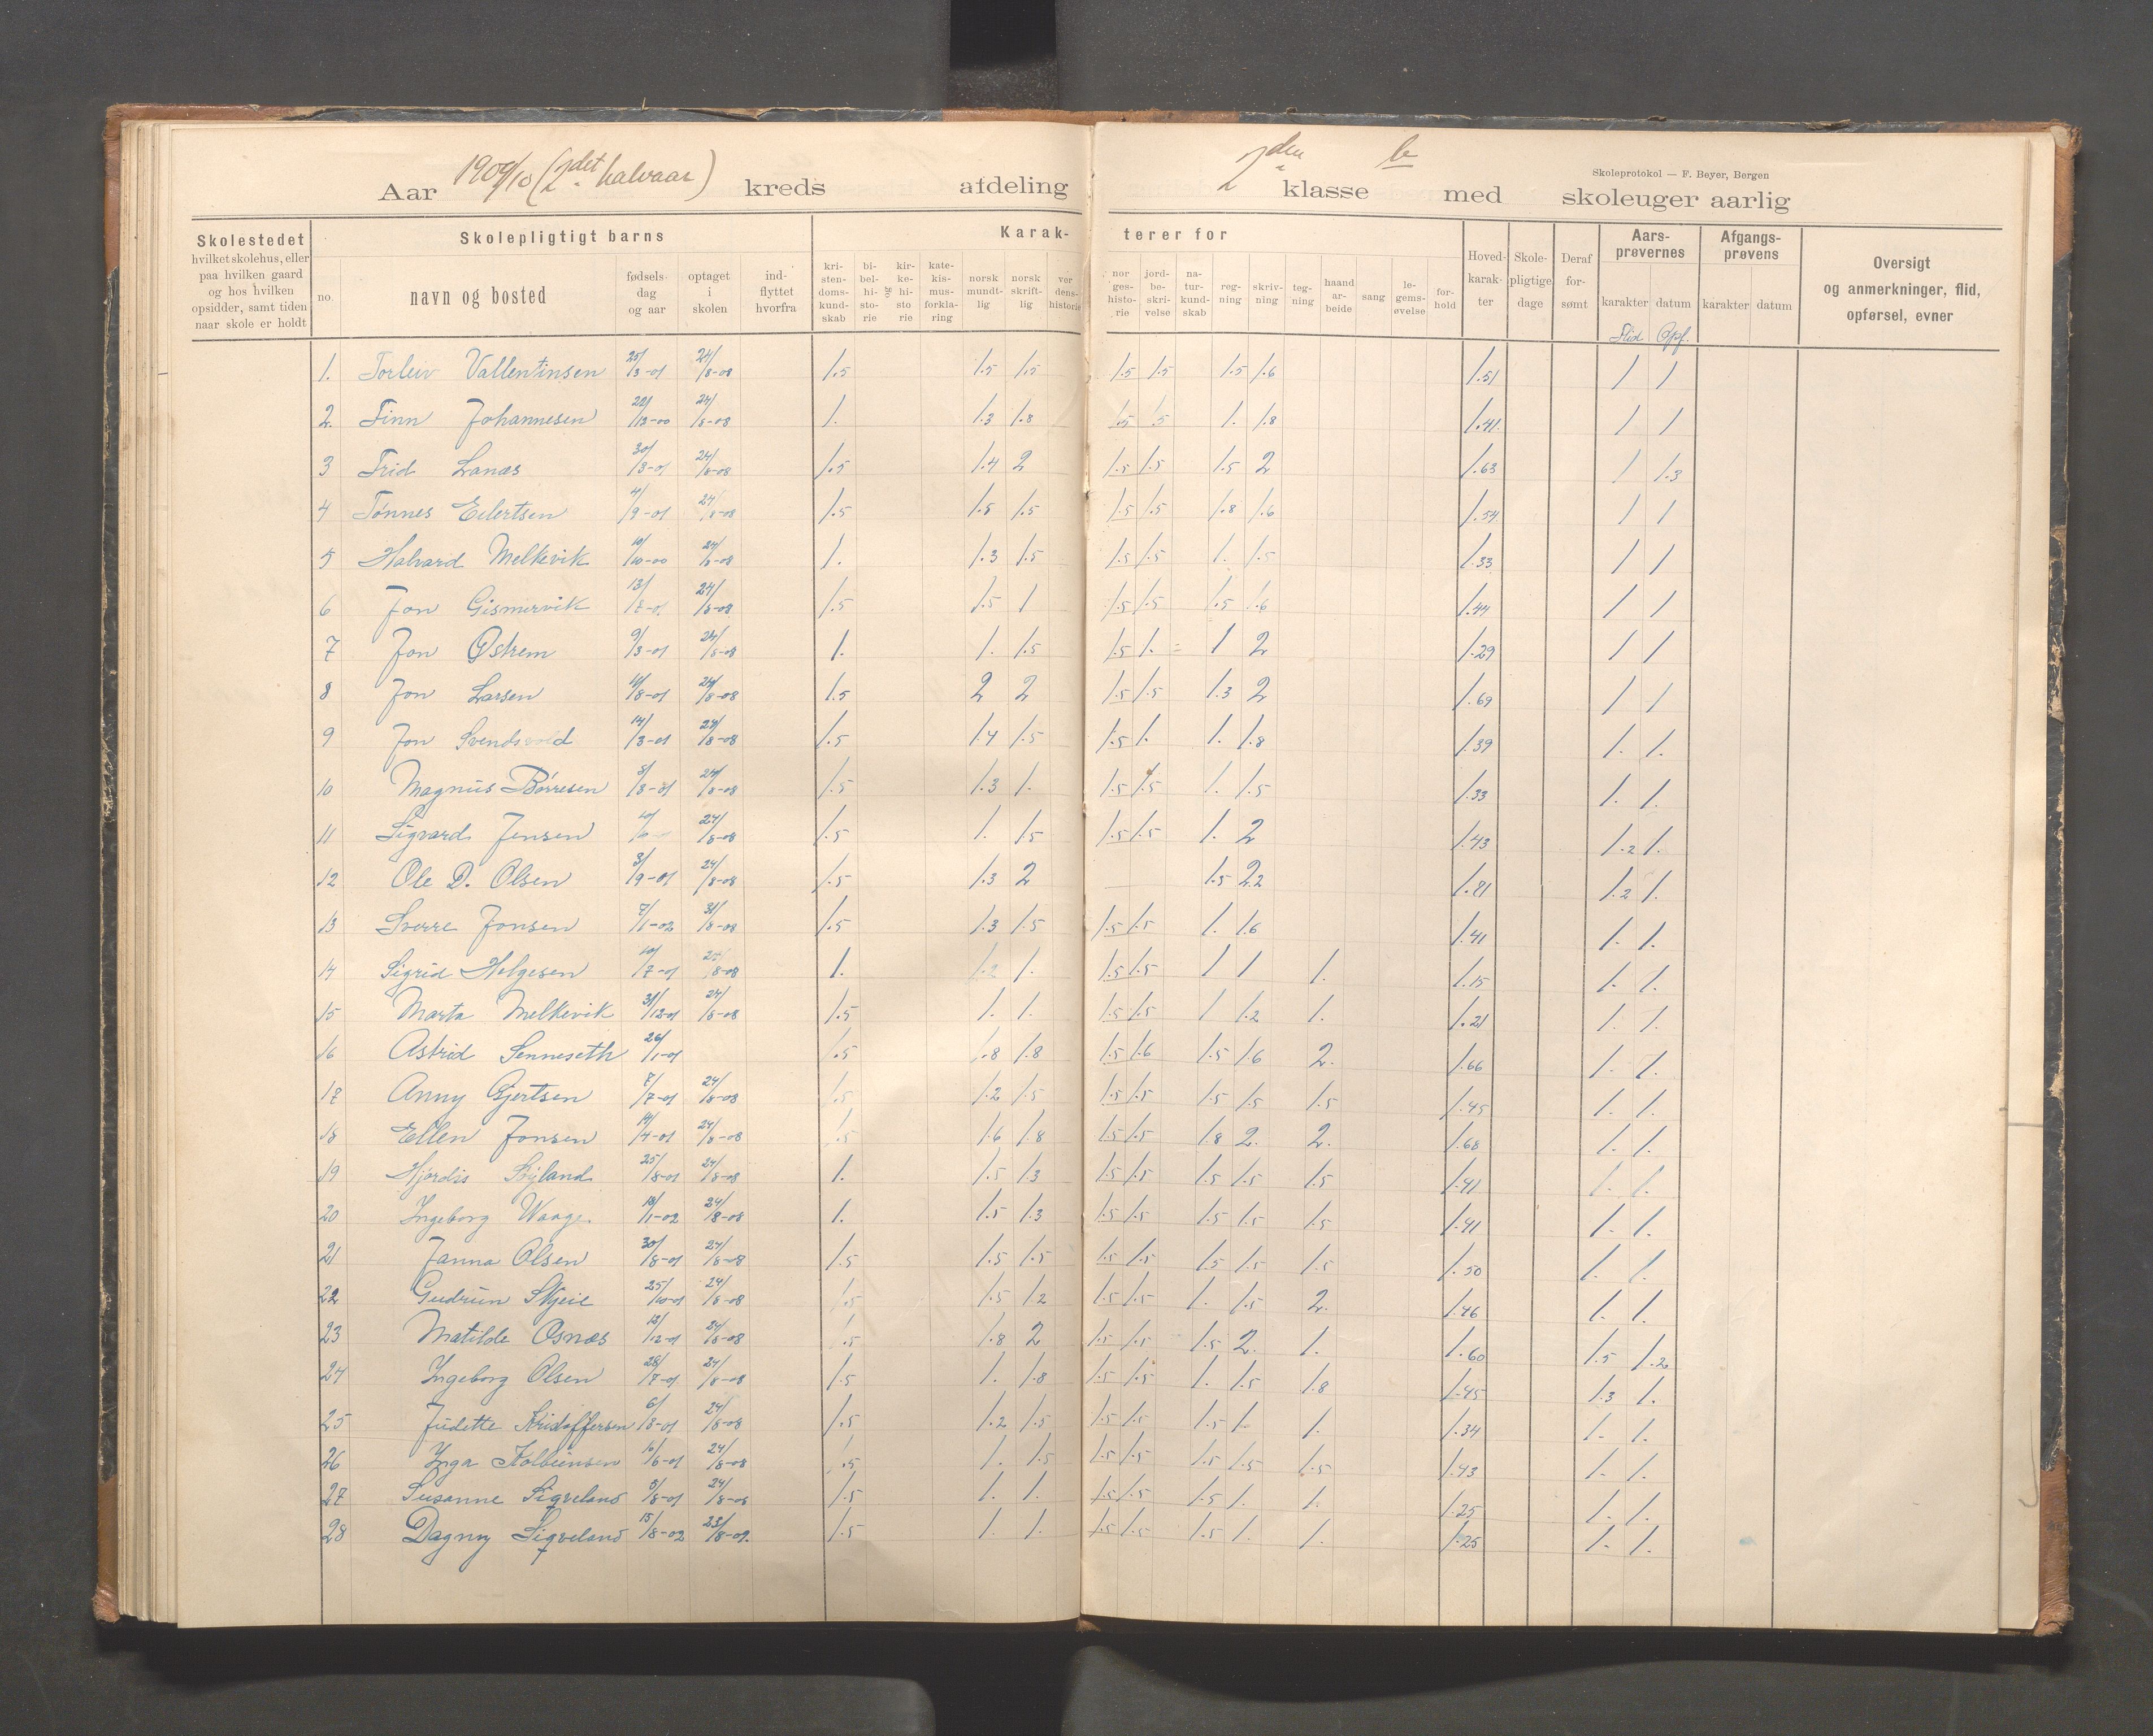 Aar 1909/10 (2det halvaar) kreds afdeling 2den klasse b med skoleuger aarlig
Skoleprotokol — F. Beyer, Bergen
Skolestedet
hvilket skolehus, eller
paa hvilken gaard
og hos hvilken
opsidder, samt tiden
naar skole er holdt
Skolepligtigt barns
no.
navn og bosted
fødsels-
dag
og aar
optaget
i
skolen
ind-
flyttet
hvorfra
Karak-
terer for
kri-
sten-
doms-
kund-
skab
bi-
bel-
hi-
sto-
rie
og
kir-
ke-
hi-
sto
rie
kate-
kis-
mus-
forkla-
ring
norsk
mundt-
lig
norsk
skrift-
lig
ver
dens-
historie
nor
ges-
histo-
rie
jord-
be-
skri-
velse
na-
tur-
kund-
skab
reg-
ning
skriv-
ning
teg-
ning
haand
ar-
beide
sang
le-
gems-
øvelse
for-
hold
Hoved-
karak-
ter
Skole-
pligtige
dage
Deraf
for-
sømt
Aars-
prøvernes
karakter datum
Flid Opf.
Afgangs-
prøvens
karakter datum
Oversigt
og anmerkninger, flid,
opførsel, evner
1. Torleiv Vallentinsen 25/3-01 24/8-08 1.5 1.5 1.5 1.5 1.5 1.5 1.6 1.51 1 1
2. Finn Johannesen 22/12-00 24/8-08 1. 1.3 1.8 1.5 1.5 1. 1.8 1.41 1 1
3 Frid Lanæs 30/8-01 24/8-08 1.5 1.4 2 1.5 1.5 1.5 2 1.63 1 1.3
4 Tønnes Eilertsen 4/9-01 24/8-08 1.5 1.5 1.5 1.5 1.5 1.8 1.6 1.54 1 1
5 Halvard Melkevik 10/10-00 24/8-08 1. 1.3 1.5 1.5 1.5 1. 1.5 1.33 1 1
6 Jon Gismervik 13/7-01 24/8-08 1.5 1.5 1 1.5 1.5 1.5 1.6 1.44 1 1
7 Jon Østrem 9/3-01 24/8-08 1. 1. 1.5 1.5 1. 1 2 1.29 1 1
8 Jon Larsen 24/8-08 1.5 2 2 1.5 1.5 1.3 2 1.69 1 1
9 Jon Svendsvold 14/3-01 24/8-08 1.5 1.4 1.5 1.5 1. 1. 1.8 1.39 1. 1.
10 Magnus Børresen 24/8-08 1.5 1.3 1. 1.5 1.5 1. 1.5 1.33 1. 1.
11 Sigvard Jensen 24/8-08 1.5 1. 1.5 1.5 1.5 1. 2 1.43 1.2 1.
12 Ole D. Olsen 3/9-01 24/8-08 1.5 1.3 2 1.5 2.2 1.81 1.2 1.
13 Sverre Jonsen 7/1-02 31/8-08 1.5 1.3 1.5 1.5 1.5 1. 1.6 1.41 1. 1.
14 Sigrid Helgesen 10/7-01 24/8-08 1. 1.2 1. 1.5 1.5 1 1 1. 1.15 1. 1.
15 Marta Melkevik 31/12-01 24/8-08 1.5 1. 1. 1.5 1.5 1 1.2 1. 1.21 1. 1.
16 Astrid Senneseth 26/1-01 1.5 1.8 1.8 1.5 1.6 1.5 1.6 2. 1.66 1. 1.
17 Anny Gjertsen 7/7-01 24/8-08 1.5 1.2 1.5 1.5 1.5 1.5 1.5 1.5 1.45 1. 1.
18 Ellen Jonsen 14/4-01 24/8-08 1.5 1.6 1.8 1.5 1.5 1.8 2. 2. 1.68 1. 1.
19 Hjørdis Søyland 25/8-01 24/8-08 1. 1.5 1.3 1.5 1.5 1.5 1.5 1.5 1.41 1. 1.
20 Ingeborg Waage. 24/8-08 1. 1.5 1.3 1.5 1.5 1.5 1.5 1.5 1.41 1. 1.
21 Janna Olsen 30/8-01 24/8-08 1.5 1.5 1.5 1.5 1.5 1.5 1.5 1.5 1.50 1. 1.
22 Gudrun Skjeie 25/10-01 24/8-08 1.5 1.5 1.2 1.5 1.5 1. 1.5 2. 1.46 1. 1.
23 Matilde Osnæs 24/8-08 1.5 1.8 2 1.5 1.5 1.5 2. 1. 1.60 1.5 1.2
24 Ingeborg Olsen 28/7-01 24/8-08 1.5 1. 1.8 1.5 1.5 1. 1.5 1.8 1.45 1.3 1.
25 Judette Kristoffersen 6/8-01 24/8-08 1.5 1.2 1.5 1.5 1.5 1.5 1. 1. 1.34 1. 1.
26 Inga Kolbeinsen 16/6-01 24/8-08 1.5 1. 1.5 1.5 1.5 1.5 1.5 1.5 1.43 1. 1.
27 Susanne Sigveland 5/8-01 24/8-08 1.5 1. 1. 1.5 1.5 1.5 1. 1. 1.25 1. 1.
28 Dagny Sigveland 15/8-02 23/8-09. 1.5 1. 1. 1.5 1.5 1.5 1. 1. 1.25 1. 1.